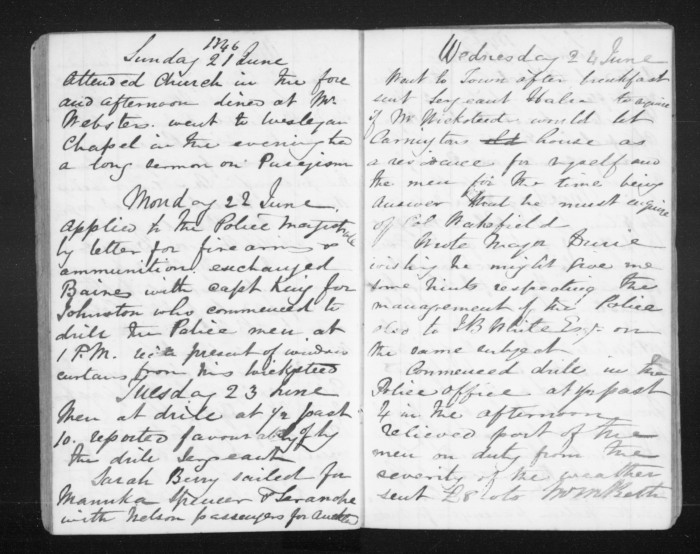 1846
Sunday 21 June
Attended Church in the fore
and afternoon dined at Mr
Websters. went to Wesleyan
Chapel in the evening heard
a long sermon on Puseyism
Monday 22 June
Applied to the Police Magistrate
by letter for fire arms &
ammunition. exchanged
Baines with capt King for
Johnston who commenced to
drill the Police men at
1 P.M. recd a present of window
curtains from Mrs Wicksteed
Tuesday 23 June
Men at drill at ½ past
10. reported favourably of by
the drill Sergeant
Sarah Berry sailed for
Manuka Spencer & Taranake
with Nelson passengers for
Wednesday 24 June
Went to Town after breakfast
sent Sergeant to enquire
if Mr Wicksteed would let
Carringtons old house as
a residence for myself and
the men for the time being
Answer that he must enquire
of Col. Wakefield
Wrote Major Durie
wishing he might give me
some hints respecting the
management of the Police
also to J B White Esqr on
the same subject
Commenced drill in the
Police Office at ½ past
4 in the afternoon
relieved part of the
men on duty from the
severity of the weather
sent £8